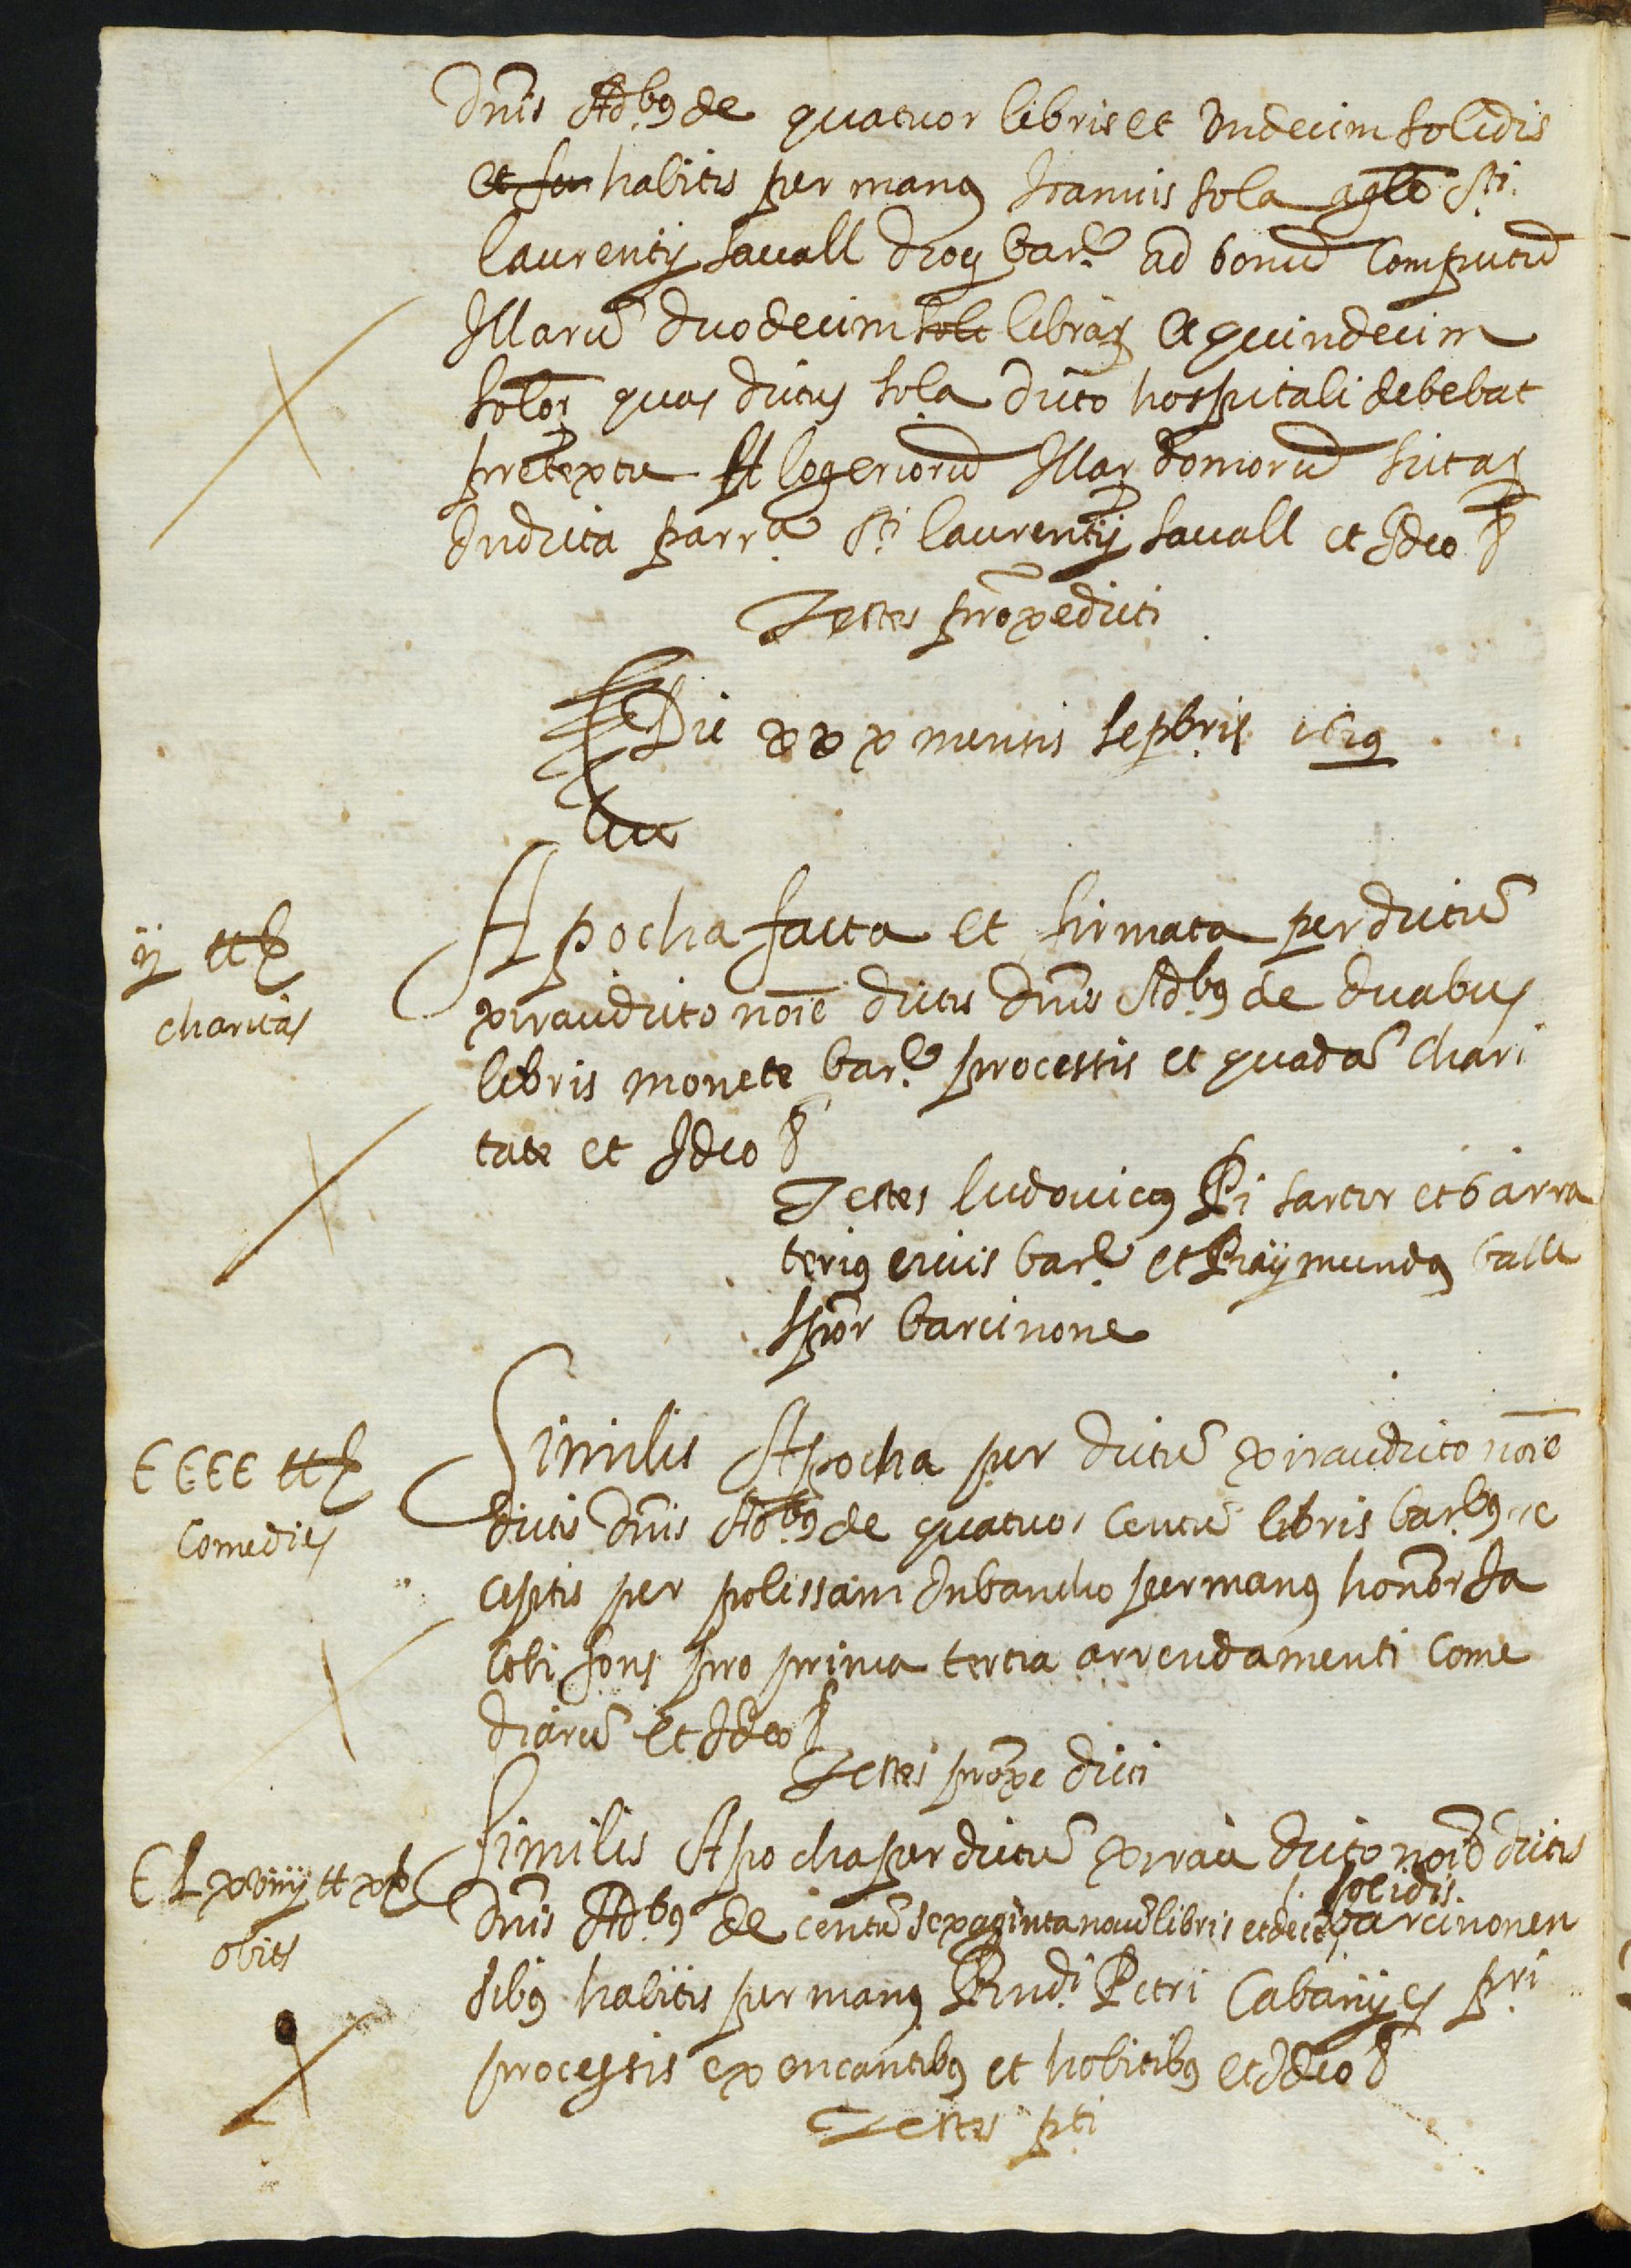 Dnis Adbꝰ de quatuor libris et undecim solidis
et habitis per manꝰ Joannis sola agle Sti
laurentij savall dioꝝ bar.e ad bonū Computū
Illarū duodecim soli libraꝝ et quindecim
soloꝝ quas dictus sola dicto hospitali debebat
pretextu logeriorū Illaꝝ domorū sitaꝝ
In dicta parr.a Sti laurentij savall et Ideo &
Testes prōxe dicti
Die xxx mensis sepbris 1619
Apocha facta et firmata per dictū
xirau dicto noīe dictis Dnis Adbꝰ de duabus
libris monete bar.e processis et quadā chari
tate et Ideo &
ij ₶ ß
charitas
Testes ludovicꝰ Pi sartor et barra
teriꝰ civis bar.e et Raymundꝰ valls
scptor barcinone
Similis Apocha per dictū xirau dicto noīe
dictis Dnis Adbꝰ de quatuor Centū libris bar.bꝰ re
ceptis per polissam In bancho per manꝰ honor Ja
cobi fons pro prima tertia arrendamenti Come
diarū et Ideo &
CCCC ₶ ß
Comedies
Testes prōxe dicti
Similis Apocha per dictū xirau dicto noīe dictis
Dnis Adbꝰ de centū sexaginta novē libris et decē solidis barcinonen
sibꝰ habitis per manꝰ Rndi Petri Cabanyes pri
processis ex encantibꝰ et hobitibꝰ et Ideo &
CLxviiij ₶ x ß
obits
Testes pti